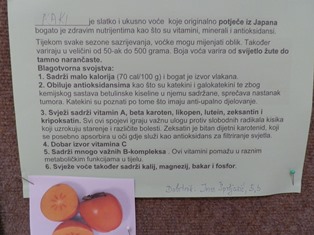 KAKI
je slatko i ukusno voće koje originalno potječe iz Japana
bogato je zdravim nutrijentima kao što su vitamini, minerali i antioksidansi.
Tijekom svake sezone sazrijevanja, voćke mogu mijenjati oblik. Također
variraju u veličini od 50-ak do 500 grama. Boja voća varira od svijetlo žute do
tamno narančaste.
Blagotvorna svojstva:
1. Sadrži malo kalorija (70 cal/100 g) i bogat je izvor vlakana.
2. Obiluje antioksidansima kao što su katekini i galokatekini te zbog
kemijskog sastava betulinske kiseline u njemu sadržane, sprečava nastanak
tumora. Katekini su poznati po tome što imaju anti-upalno djelovanje.
3. Svježi sadrži vitamin A, beta karoten, likopen, lutein, zeksantin i
kripoksatin. Svi ovi spojevi igraju važnu ulogu protiv slobodnih radikala kisika
koji uzrokuju starenje i različite bolesti. Zeksatin je bitan dijetni karotenid, koji
se posebno apsorbira u oči gdje služi kao antioksidans za filtriranje svjetla.
4. Dobar izvor vitamina C
5. Sadrži mnogo važnih B-kompleksa . Ovi vitamini pomažu u raznim
metaboličkim funkcijama u tijelu.
6. Svježe voće također sadrži kalij, magnezij, bakar i fosfor.